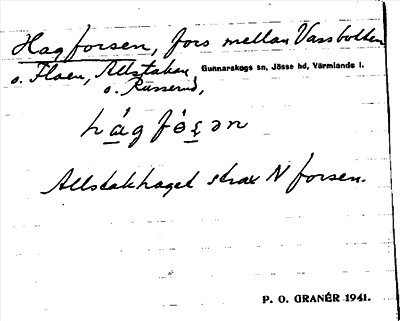 Hagforsen, fors mellan Vassbotten
o. Floen, Allstakan Gunnarskogs sn, Jösse hd, Värmlands l.
o. Russerud,
hágfò̱ṣən
Allstakhaget strax N forsen.
P. O. GRANÉR 1941.